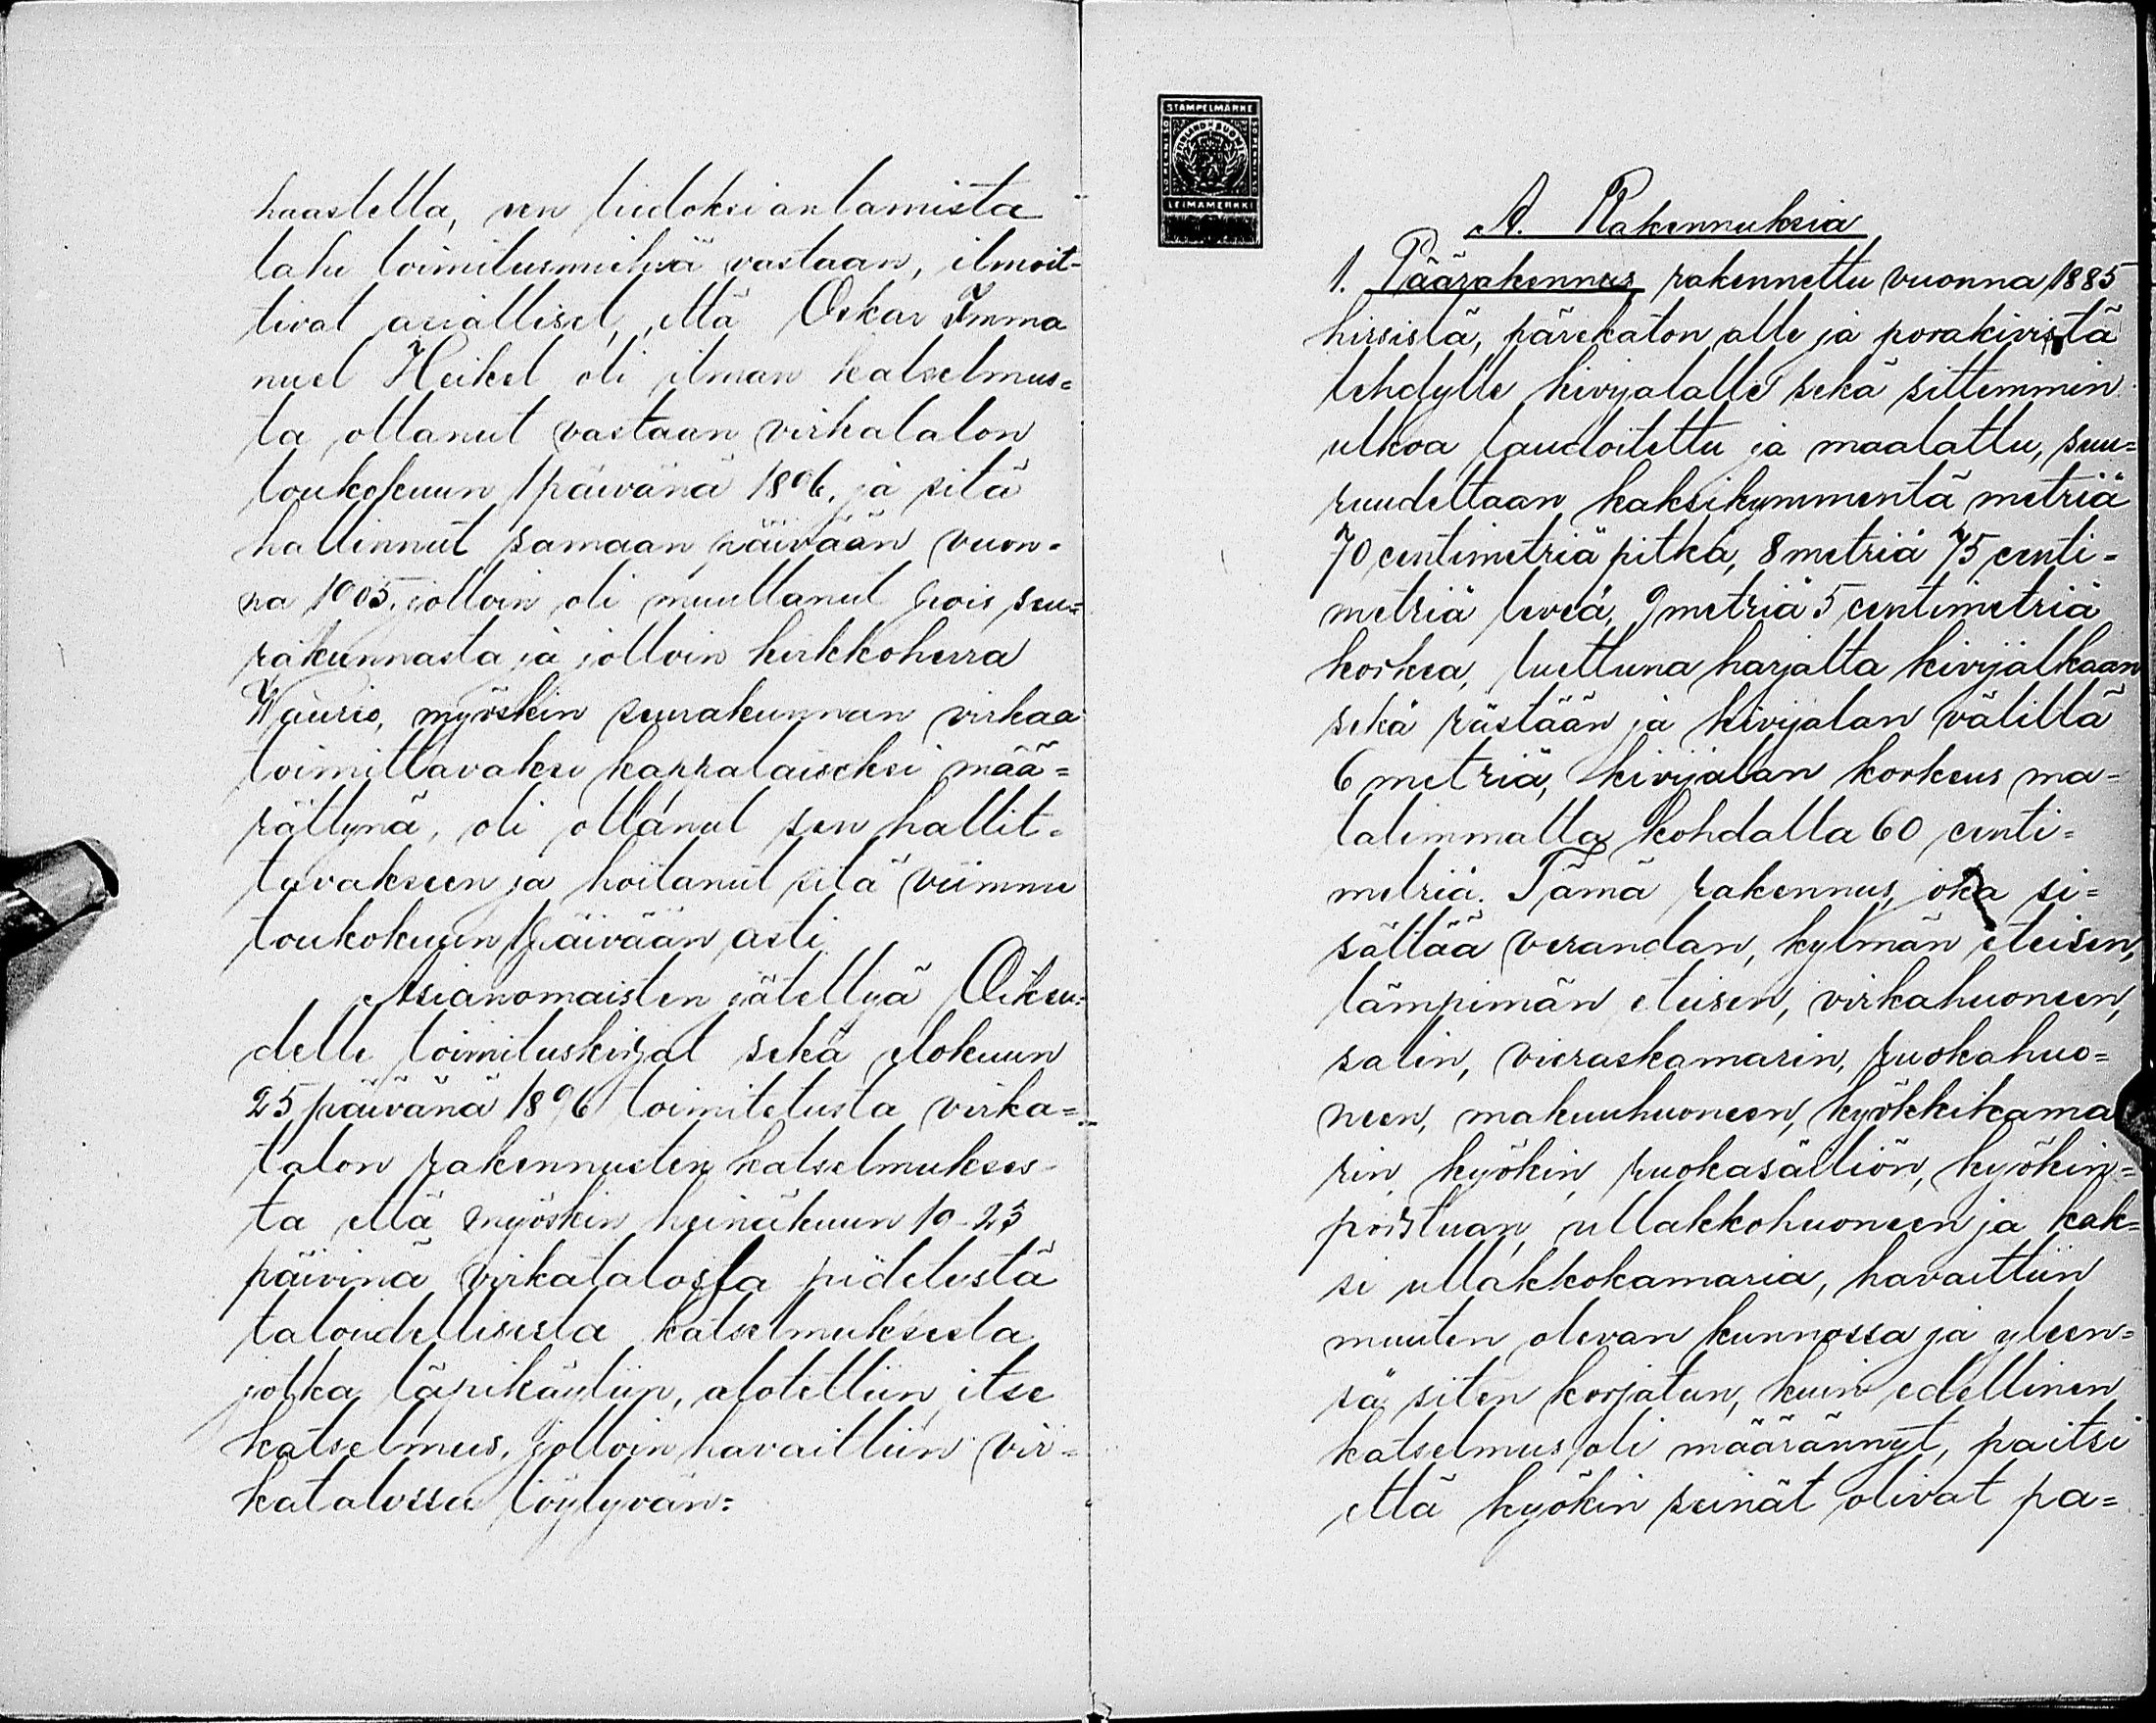 haastella, sen tiedoksiantamista
tahi toimitusmiehiä vastaan, ilmoit-
tivat asialliset, että Oskar Imma
nuel Heikel oli ilman katselmus=
ta ottanut vastaan virkatalon
toukokuun 1 päivänä 1896, ja sitä
hallinnut samaan päivään vuon=
na 1905, jolloin oli muuttanut pois seu=
rakunnasta ja jolloin kirkkoherra
Waurio, myöskin seurakunnan virkaa
toimittavaksi kappalaiseksi mää=
rättynä, oli ottanut sen hallit=
tavakseen ja hoitanut sitä viimme
toukokuun 1 päivään asti.
Asianomaisten jätettyä Oikeu=
delle toimituskirjat sekä elokuun
25 päivänä 1896 toimitetusta virka=
talon rakennusten katselmukses-
ta että myöskin heinäkuun 19-23
päivinä virkatalossa pidetystä
taloudellisesta katselmuksesta
jotka läpikäytiin, alotettiin itse
katselmus, jolloin havaittiin vir=
katalossa löytyvän:
STAMPELMÄRKE
FINLAND SUOMI
LEIMAMERKKI
A. Rakennuksia
1. Päärakennus rakennettu vuonna 1885
hirsistä, pärekaton alle ja porakivistä
tehdylle kivijalalle sekä sittemmin
ulkoa laudoitettu ja maalattu, suu=
ruudeltaan kaksikymmentä metriä
70 centimetriä pitkä, 8 metriä 75 centi=
metriä leveä, 9 metriä 5 centimetriä
korkea, luettuna harjalta kivijalkaan
sekä rästään ja kivijalan välillä
6 metriä, kivijalan korkeus ma-
talimmalta kohdalta 60 centi=
metriä. Tämä rakennus, joka si=
sältää verandan, kylmän eteisen,
lämpimän eteisen, virkahuoneen,
salin, vieraskamarin, ruokahuo=
neen, makuuhuoneen, kyökkikama
rin, kyökin, ruokasäiliön, kyökin=
porstuan, ullakkohuoneen ja kak=
si ullakkokamaria, havaittiin
muuten olevan kunnossa ja yleen=
sä siten korjatun, kuin edellinen
katselmus oli määrännyt, paitsi
että kyökin seinät olivat pa=